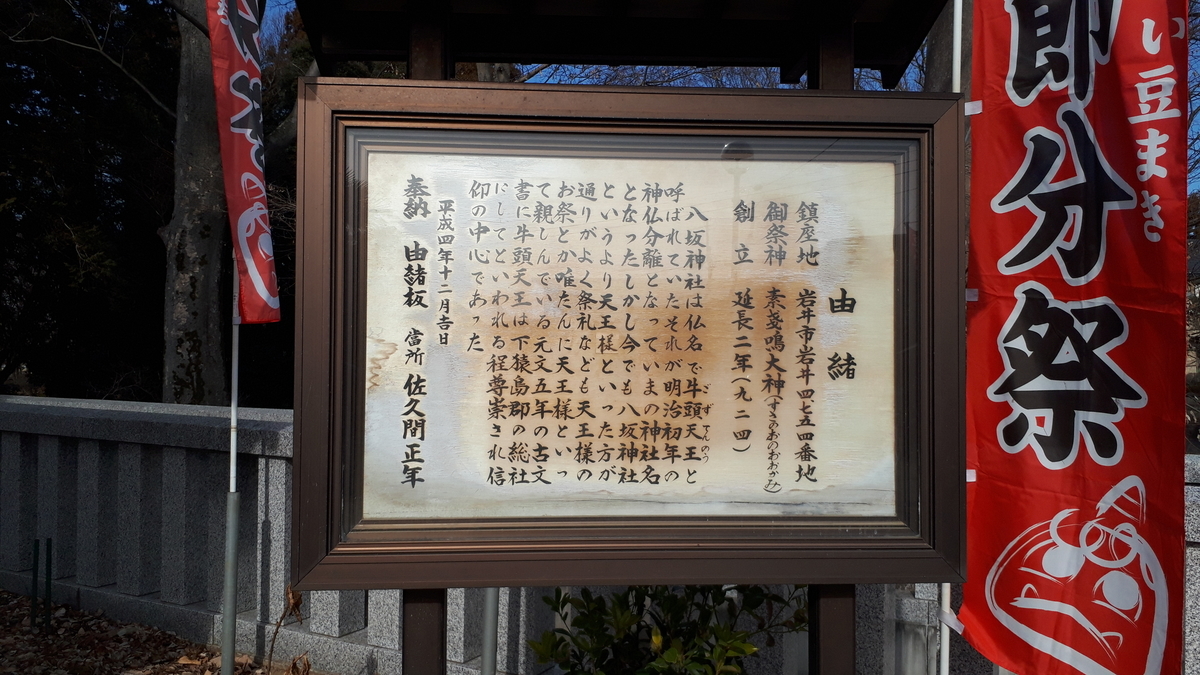 い豆まき
節分祭
由緒
鎮座地 岩井市岩井四七五四番地
御祭神 素戔鳴大神(すさのおのおおかみ)
創立 延長二年(九二四)
八坂神社は仏名で牛頭天王と
ごずてんのう
呼ばれていたそれが明治初年の
神仏分離となっていまの神社名
となったしかし今でも八坂神社
というより天王様といった方が
通りがよく祭礼なども天王様の
お祭とか唯たんに天王様といっ
て親しんでいる元文五年の古文
書に牛頭天王は下猿島郡の総社
にしてといわれる程尊崇され信
仰の中心であった
平成四年十二月吉日
奉納 由緒板 當所 佐久間正年